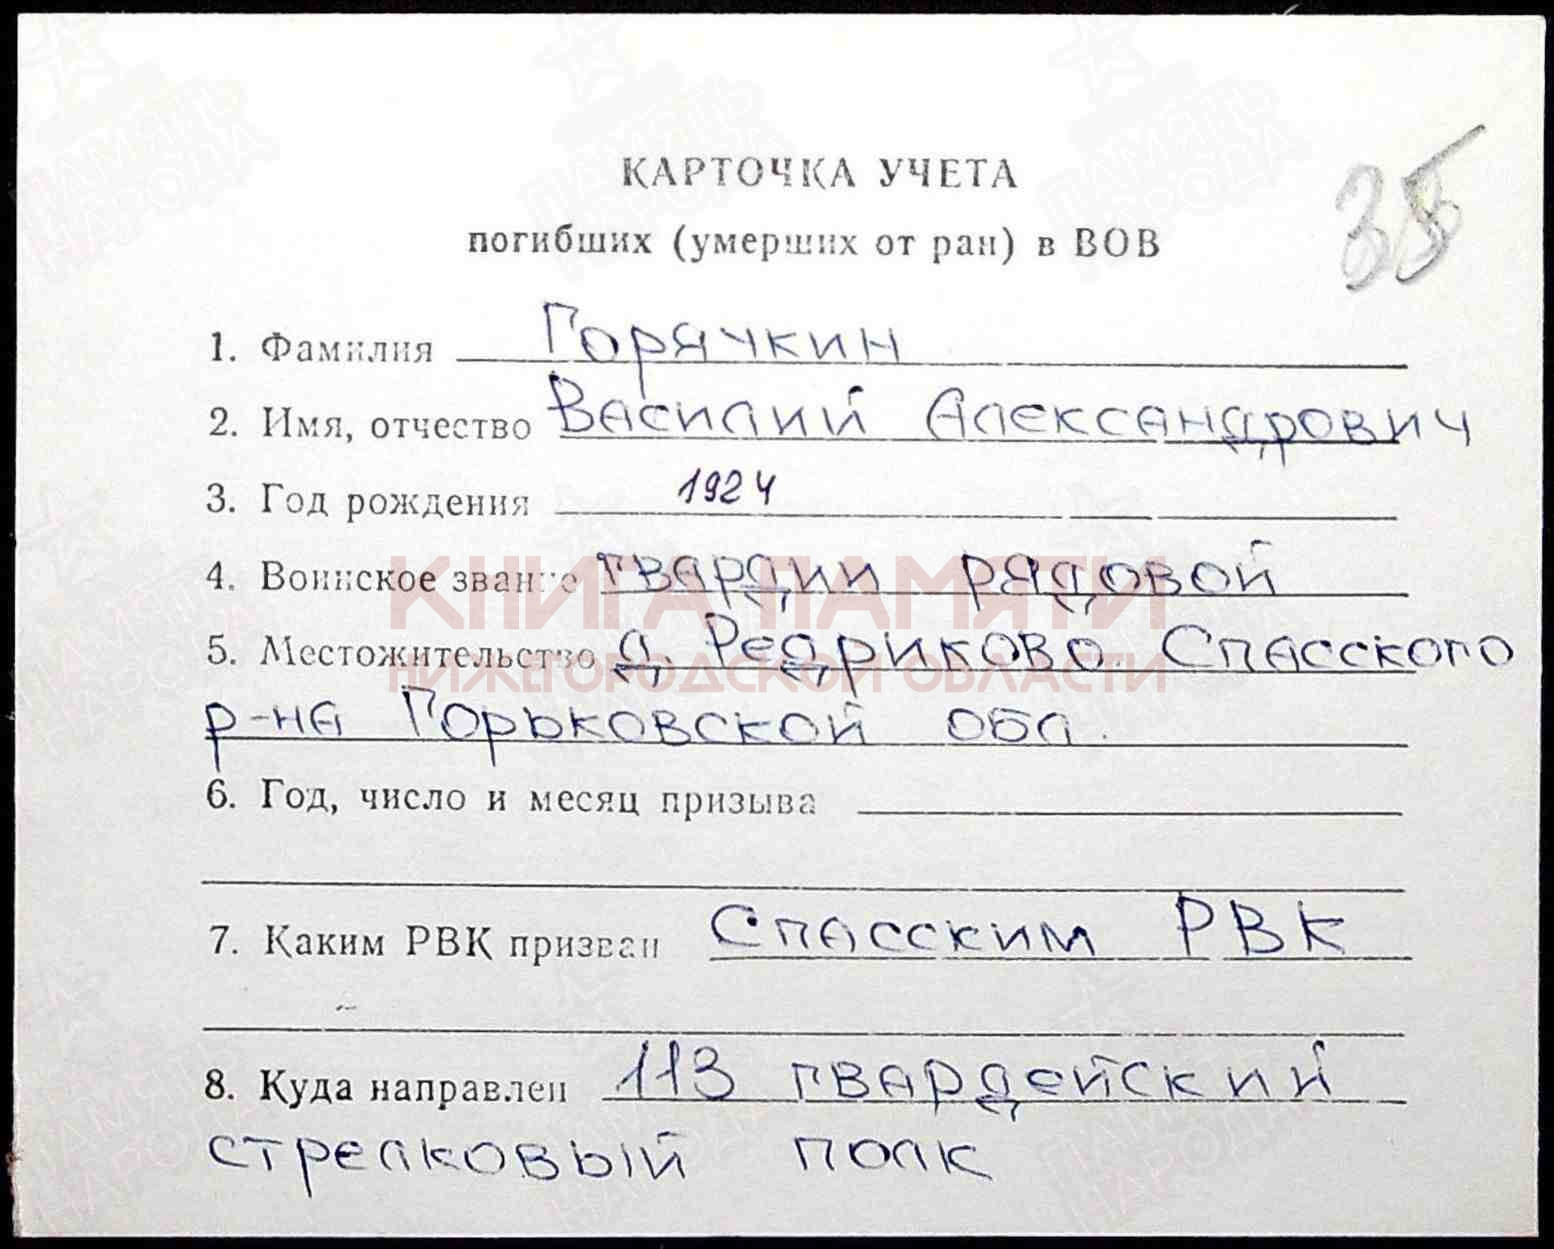 35
КАРТОЧКА УЧЕТА
погибших (умерших от ран) в ВОВ
1. Фамилия Горячкин
2. Имя, отчество Василий Александрович
3. Год рождения 1924
4. Воинское звание гвардии рядовой
5. Местожительство д. Редриково Спасского
р-на Горьковской обл.
6. Год, число и месяц призыва
7. Каким РВК призван Спасским РВК
8. Куда направлен 113 гвардейский
стрелковый полк
КНИГА ПАМЯТИ
НИЖЕГОРОДСКОЙ ОБЛАСТИ
ПАМЯТЬ
НАРОДА